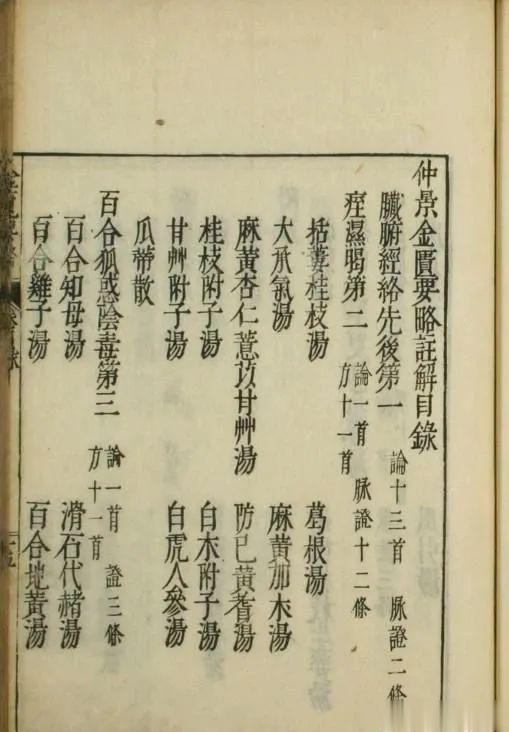 仲景金匱要略註解目錄
臟腑經絡先後第一 論十三首 脉證二條
痓濕暍第二 論一首 脉證十二條 方十一首
括蔞桂枝湯 葛根湯
大承氣湯 麻黃加木湯
麻黃杏仁薏苡甘艸湯 防已黃蓍湯
桂枝附子湯 白木附子湯
甘艸附子湯 白虎人參湯
瓜蒂散
百合狐惑陰毒第三 論一首 證三條 方十一首
百合知母湯 滑石代赭湯
百合雞子湯 百合地黃湯